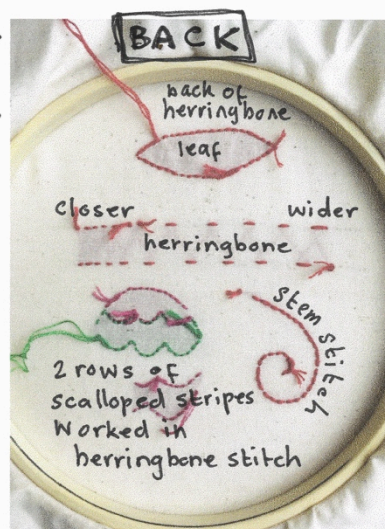 BACK
back of
herringbone
leaf
closer wider
herringbone
stem stitch
2 rows of
scalloped stripes
Worked in
herringbone stitch